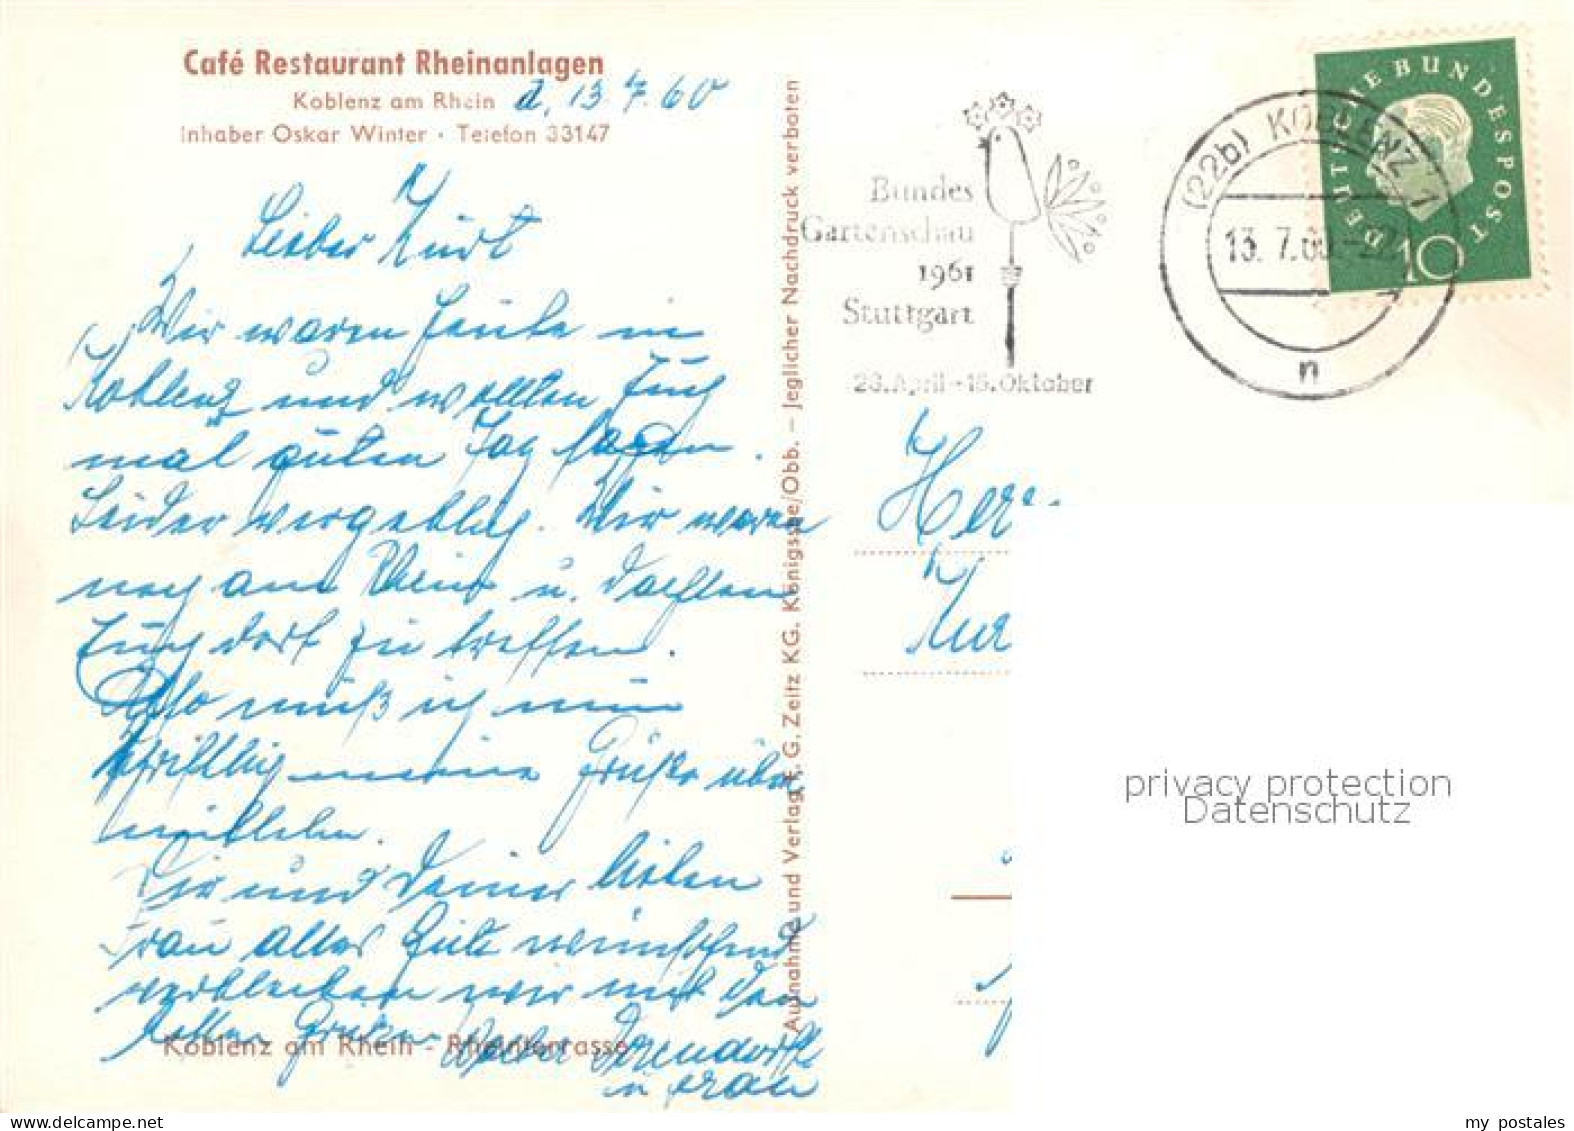 Café Restaurant Rheinanlagen
Koblenz am Rhein d. 13.7.60
Inhaber Oskar Winter · Telefon 33147
Lieber Kurt
Wir waren heute in
Koblenz und wollten Euch
mal guten Tag sagen.
Leider vergeblich. Wir waren
noch am Rhein u. dachten
Euch dort zu treffen.
Also muß ich nun
schriftlich meine Grüße über
mitteln.
Dir und Deiner lieben
Frau alles Gute wünschend
verbleiben wir mit den
besten Grüßen
u Frau
Koblenz am Rhein - Rheinterrasse
Aufnahme und Verlag F. G. Zeitz KG. Königssee/Obb. – Jeglicher Nachdruck verboten
Bundes
Gartenschau
1961
Stuttgart
23. April - 15. Oktober
(22b) KOBLENZ 1
13. 7. 60.-22
n
DEUTSCHE BUNDESPOST
10
Herr
Kur
privacy protection
Datenschutz
my postales